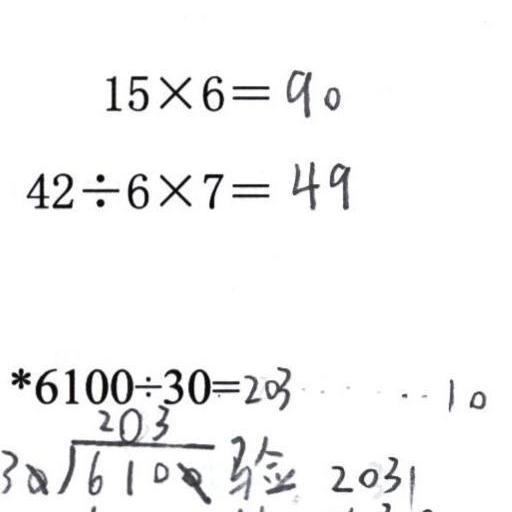 15×6=90
42÷6×7=49
*6100÷30=203······10
203
30/6100 验 2031